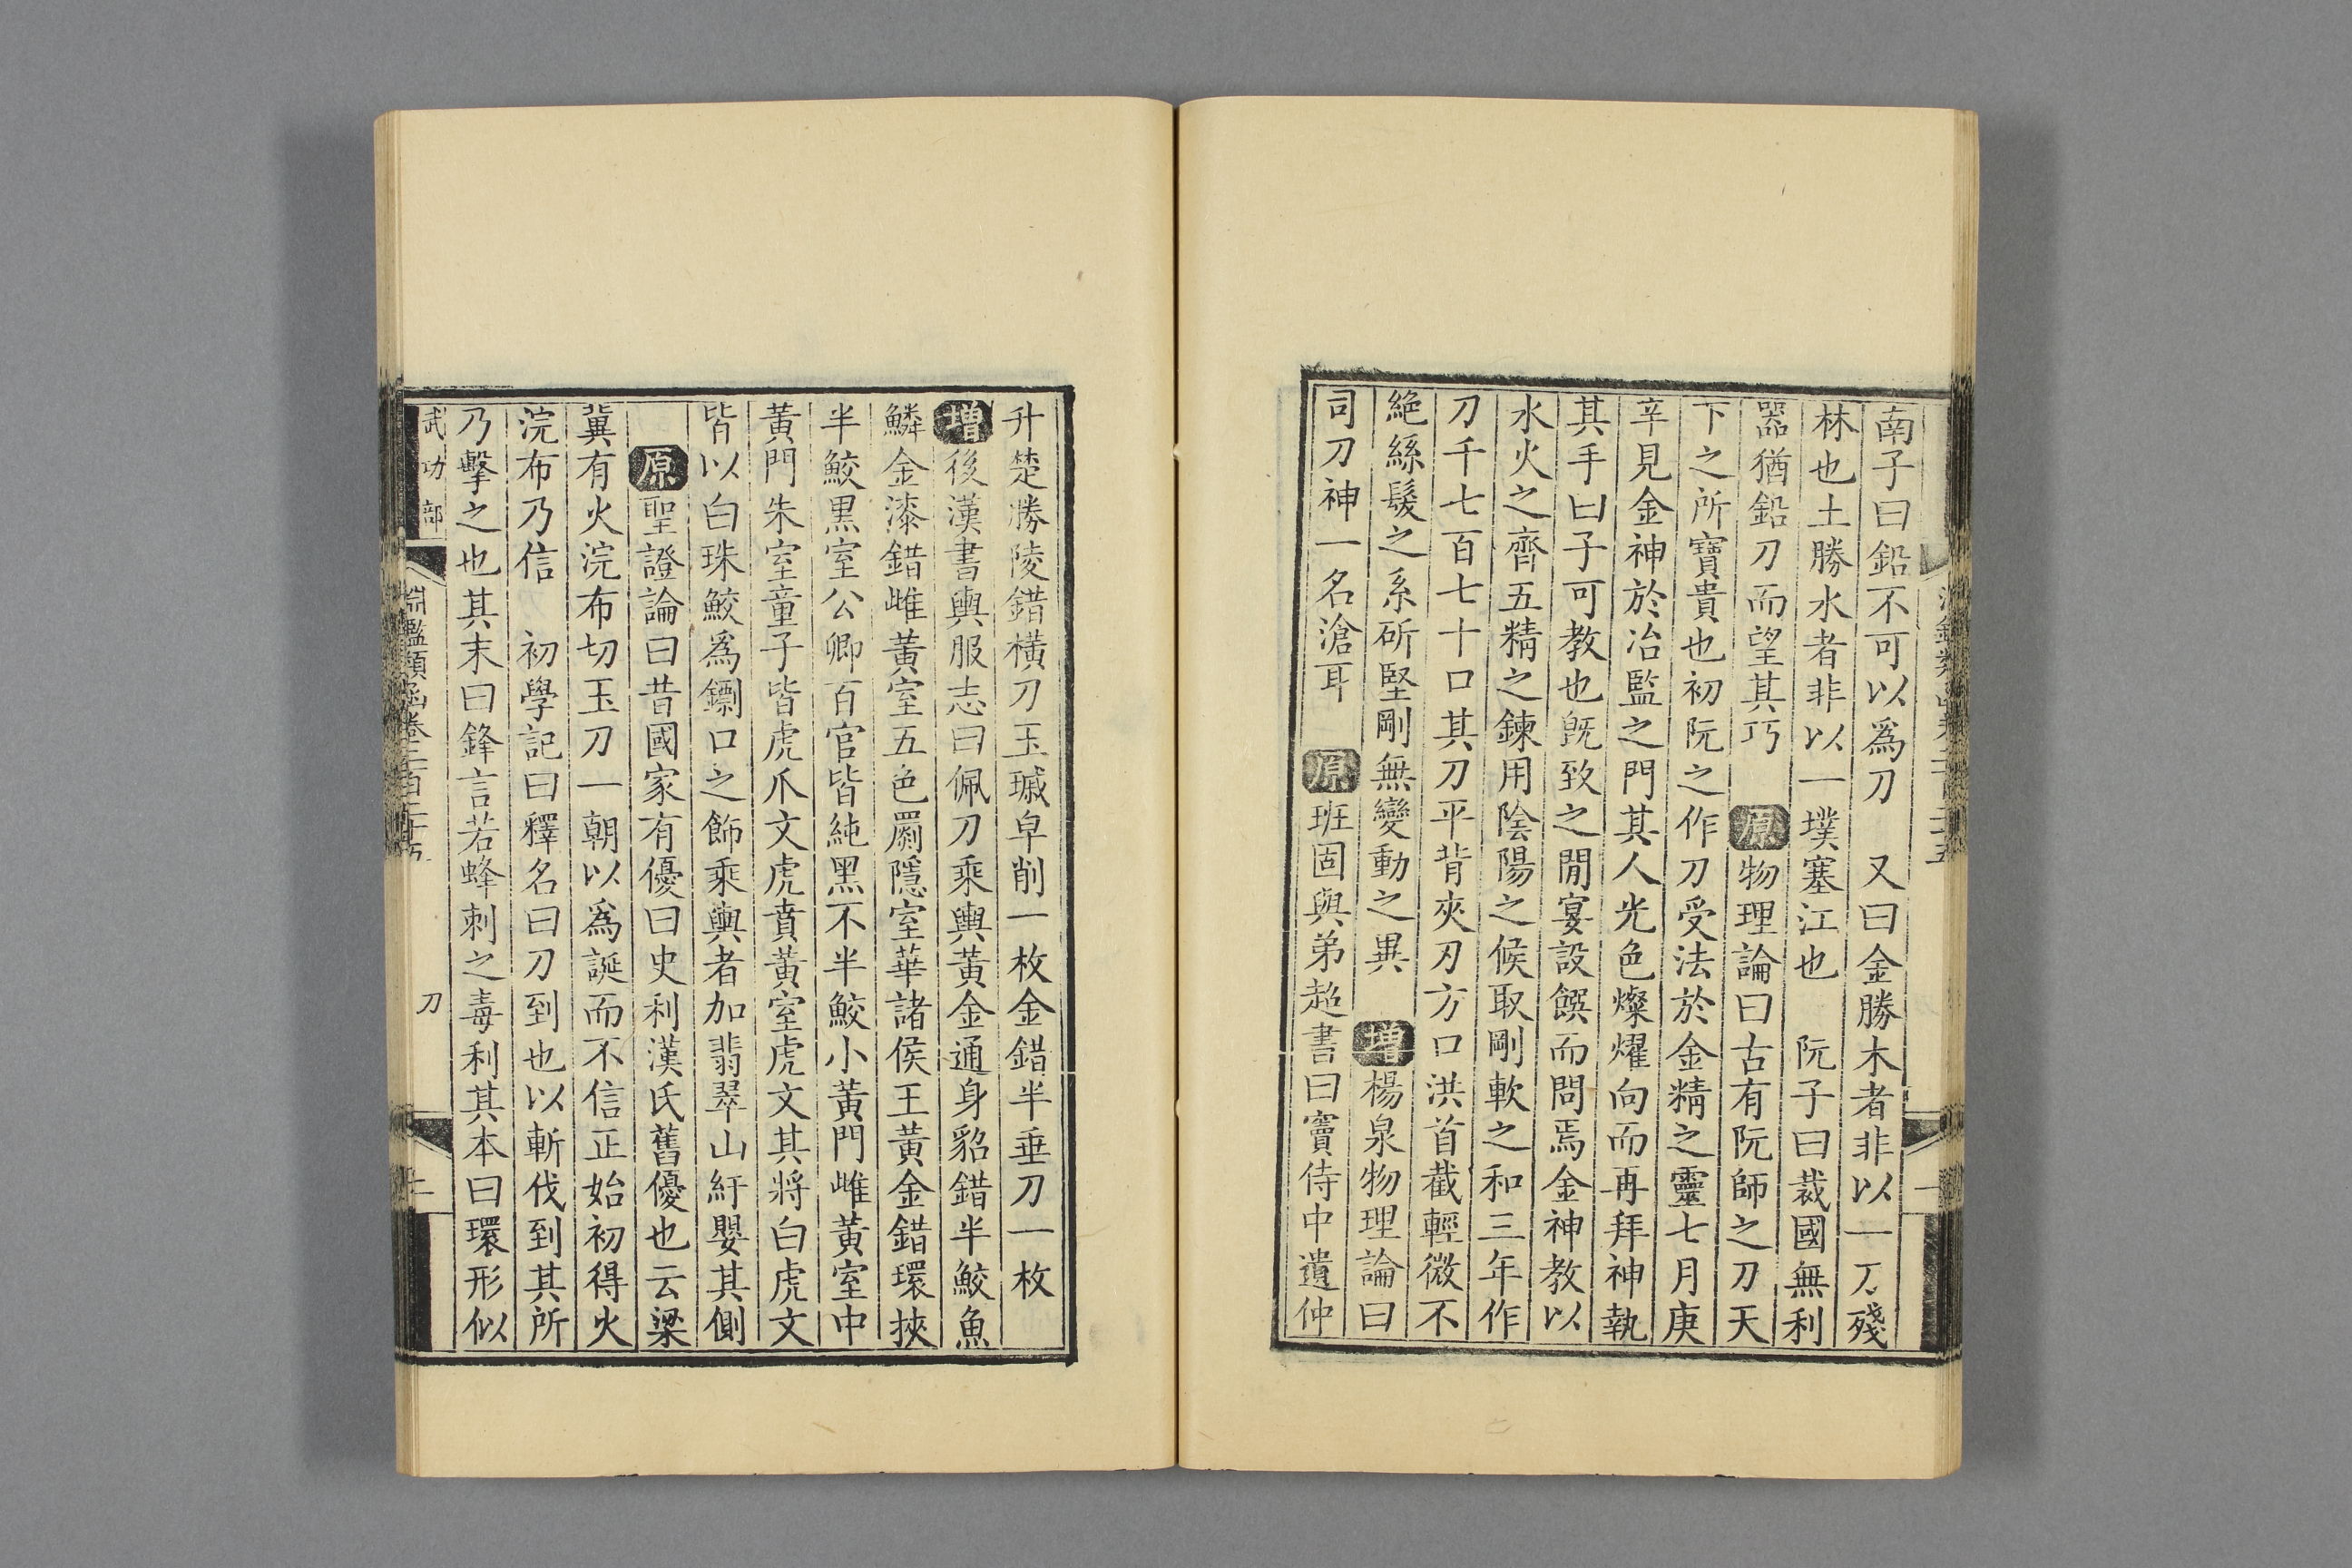 南子曰鉛不可以爲刀　又曰金勝木者非以一刃殘
林也土勝水者非以一墣塞江也　阮子曰裁國無利
器猶鉛刀而望其巧　原物理論曰古有阮師之刀天
下之所寶貴也初阮之作刀受法於金精之靈七月庚
辛見金神於冶監之門其人光色燦燿向而再拜神執
其手曰子可教也旣致之閒宴設饌而問焉金神教以
水火之齊五精之鍊用陰陽之候取剛軟之和三年作
刀千七百七十口其刀平背夾刃方口洪首截輕微不
絶絲髮之系斫堅剛無變動之異　增楊泉物理論曰
司刀神一名滄耳　原班固與弟超書曰竇侍中遺仲
升楚勝陵錯橫刀玉瑊皁削一枚金錯半垂刀一枚
增後漢書輿服志曰佩刀乘輿黃金通身貂錯半鮫魚
鱗金漆錯雌黃室五色罽隱室華諸侯王黃金錯環挾
半鮫黑室公卿百官皆純黑不半鮫小黃門雌黃室中
黃門朱室童子皆虎爪文虎賁黃室虎文其將白虎文
皆以白珠鮫爲鏢口之飾乘輿者加翡翠山紆嬰其側
原聖證論曰昔國家有優曰史利漢氏舊優也云梁
冀有火浣布切玉刀一朝以爲誕而不信正始初得火
浣布乃信　初學記曰釋名曰刀到也以斬伐到其所
乃擊之也其末曰鋒言若蜂刺之毒利其本曰環形似
武功部　淵鑑類函卷二百二十五　刀　二